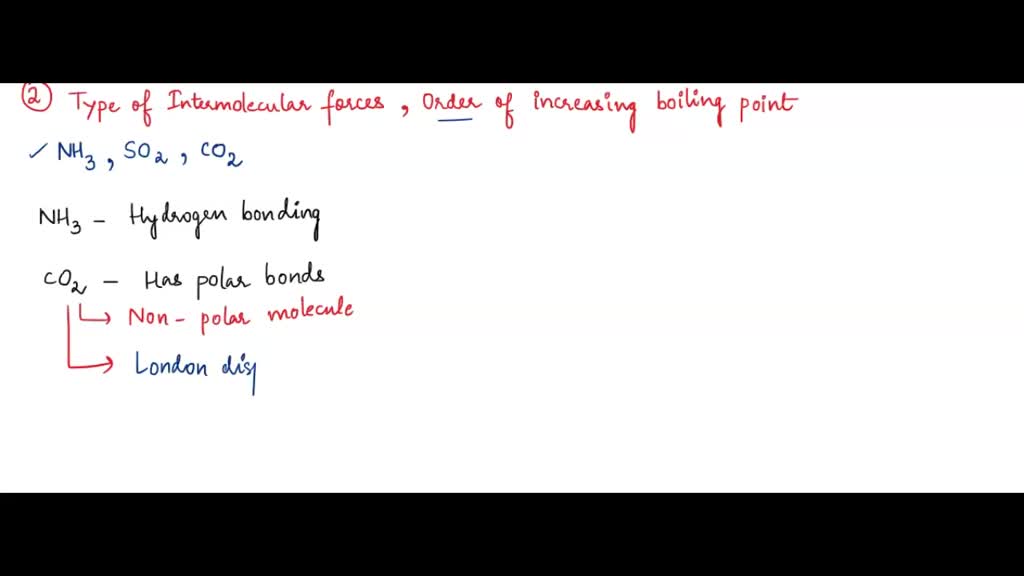 ② Type of Intermolecular forces , Order of increasing boiling point
✓ NH₃ , SO₂ , CO₂
NH₃ – Hydrogen bonding
CO₂ – Has polar bonds
Non - polar molecule
London disp